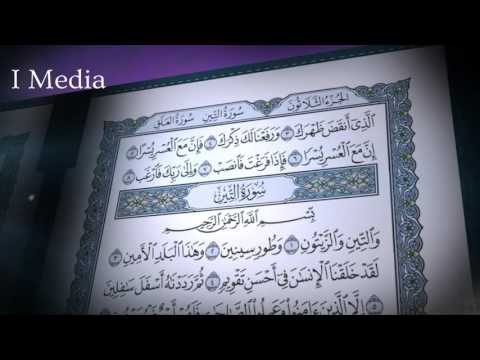 I Media
الجزء الثلاثون
سورة التين سورة العلق
الَّذِي أَنقَضَ ظَهْرَكَ ٣ وَرَفَعْنَا لَكَ ذِكْرَكَ ٤ فَإِنَّ مَعَ الْعُسْرِ يُسْرًا ٥
إِنَّ مَعَ الْعُسْرِ يُسْرًا ٦ فَإِذَا فَرَغْتَ فَانصَبْ ٧ وَإِلَىٰ رَبِّكَ فَارْغَب ٨
سورة التين
بِسْمِ اللَّهِ الرَّحْمَٰنِ الرَّحِيمِ
وَالتِّينِ وَالزَّيْتُونِ ١ وَطُورِ سِينِينَ ٢ وَهَٰذَا الْبَلَدِ الْأَمِينِ ٣
لَقَدْ خَلَقْنَا الْإِنسَانَ فِي أَحْسَنِ تَقْوِيمٍ ٤ ثُمَّ رَدَدْنَاهُ أَسْفَلَ سَافِلِينَ
٥ إِلَّا الَّذِينَ آمَنُوا وَعَمِلُوا الصَّالِحَاتِ فَلَهُمْ